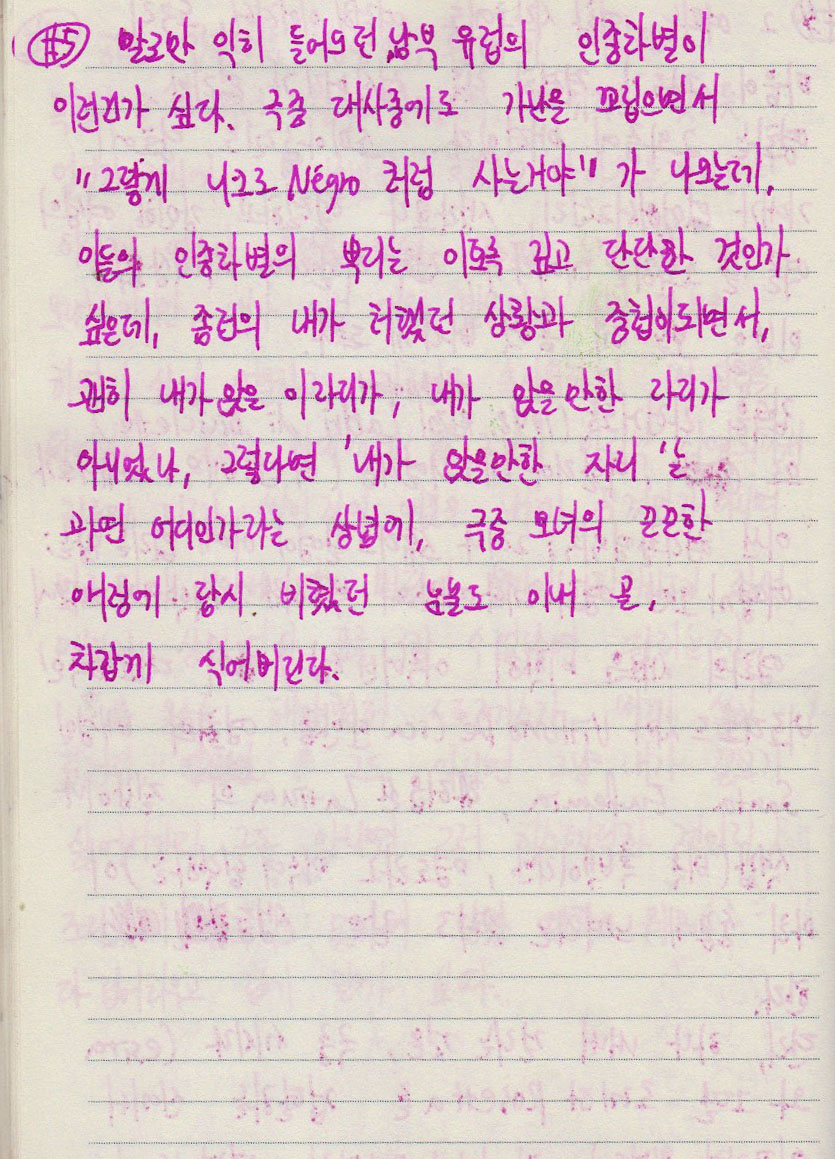 #5 말로만 익히 들어오던 남부 유럽의 인종차별이
이런건가 싶다. 극중 대사중에도 가난을 꼬집으면서
"그렇게 니그로 Négro 처럼 사는거야" 가 나오는데,
이들의 인종차별의 뿌리는 이토록 깊고 단단한 것인가
싶은데, 좀전의 내가 처했던 상황과 중첩이되면서,
괜히 내가 앉을 이 자리가, 내가 앉을만한 자리가
아니었나, 그렇다면 '내가 앉을만한 자리'는
과연 어디인가라는 상념에, 극중 모녀의 끈끈한
애정에 당시 비쳤던 눈물도 이내 곧,
차갑게 식어버린다.